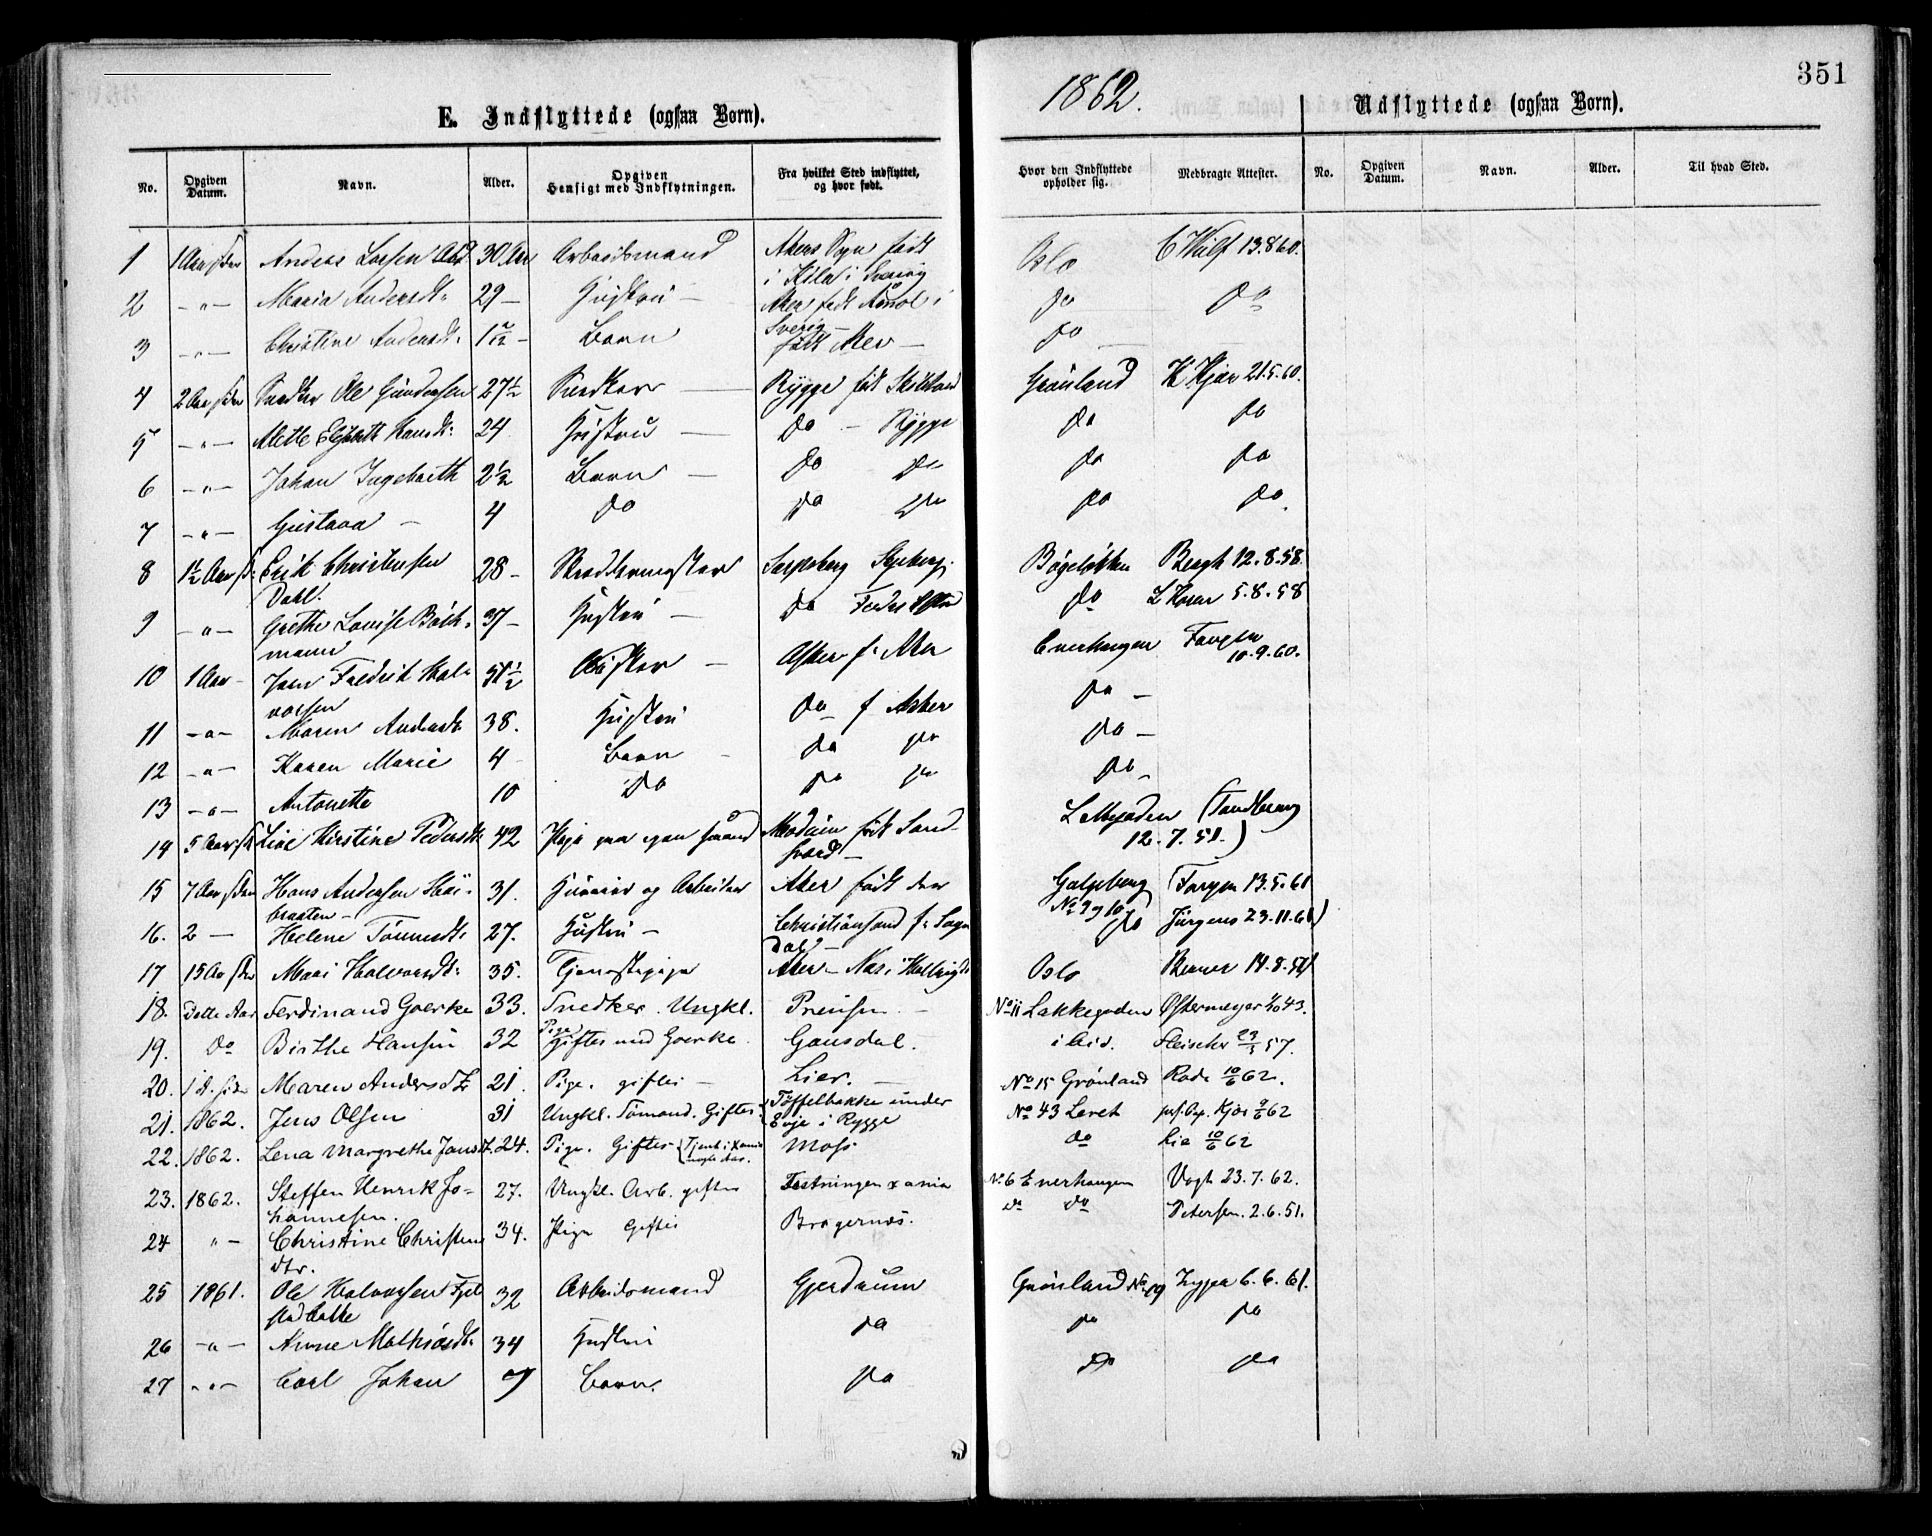 351
1862.
E. Indflyttede (ogsaa Børn).
Udflyttede (ogsaa Børn).
No. | Opgiven Datum. | Navn. | Alder. | Opgiven Hensigt med Indflytningen. | Fra hvilket Sted indflyttet, og hvor født. | Hvor den Indflyttede opholder sig. | Medbragte Attester. | No. | Opgiven Datum. | Navn. | Alder. | Til hvad Sted.
1 | 1 Aar siden | Anders Larsen | 30 Aar | Arbeidsmand | Akers Sogn født i Kila i Sverig | Oslo | C Wulf 13.8 60.
2 | -"- | Maria Andersdt: | 29 - | Hustru - | Aker født i Sverig - | do | do
3 | -"- | Christine Andersdt: | 1 - | Barn | født Aker - | do
4 | 2 Aar siden | Snedker Ole Gundersen | 27½ | Snedker | Rygge født | Grønland | Kjær 21.5.60.
5 | -"- | Mette Elisabeth Hansdt: | 24 | Hustru | do - Rygge | do | do
6 | -"- | Johan Ingebreth | 2½ | Barn - | do do | do | do
7 | -"- | Gustava - | 4 | do | do do | do | do
8 | 1½ Aar s: | Erik Christensen Dahl. | 28 - | Skreddermester | Sarpsborg | Bøgeløkken | Bergh 12.8.58.
9 | -"- | Grethe Lovise Bachmann | 37 - | Hustru - | do | do | 5.8.58
10 | 1 Aar - | Fredrik Halvorsen | 51½ | - | Asker f: Aker | Enerhaugen | 10.9.60.
11 | -"- | Maren Andersdt: | 38. | Hustru | do f Asker | do -
12 | -"- | Karen Marie | 4 - | Barn - | do do | do -
13 | -"- | Antonette | 10 | do | do do | do -
14 | 5 Aar s | Kirstine Pedersdt: | 42 | Pige paa egen Haand | Modum født Sandsværd - | (Tandberg 12.7.51.)
15 | 7 Aar siden | Hans Andersen Høibraaten - | 31. | Husmand og Arbeider | Aker født der | Galgeberg No 9 og 10 | 13.5.61
16. | 2 - | Helene Tønnesdt: | 27. | Hustru - | Christiansand f: Sogndal - | do | Jürgens 23.11.61)
17 | 15 Aar siden | Mari Halvorsdt: | 35. | Tjenestepige | Aker - Næs i Hallingd. | Oslo | 14.8.
18. | Dette Aar | Ferdinand Goerke | 33. | Snedker. Ungkl. | Preusen. - | No 11 Lakkegaden | Østermeyer 43.
19. | do | Birthe Hansen | 32 | Pige Giftes med Goerke. | Gausdal. | i Aid. | Fleischer 57.
20. | 1 A. siden | Maren Andersdt | 21. | Pige. giftes - | Lier. - | No 15 Grønland | Rode 10/6 62.
21. | 1862. | Jens Olsen | 31 | Ungkl. Sømand. Giftes: | Tøffelbakke under Evje i Rygge | No 43 Leret | Kjær 9/6 62
22. | 1862. | Lena Margrethe Jansd. | 24. | Pige. Giftes (Tjent i Xania nogle Aar. | Moss | do | Lie 10/6 62
23. | 1862. | Steffen Henrik Johannesen. | 27. | Ungkl. Arb. giftes | Festningen xania | No 6 Enerhaugen | Vogt 23.7.62.
24 | "- | Christine Christensdtr. | 34. | Pige Giftes | Bragernæs. | do do | Petersen. 2.6.51.
25 | 1861. | Ole Halvorsen | 32 | Arbeidsmand | Gjerdrum | Grønland No 19 | 6.6.61.
26 | -"- | Anne Mathiasdt: | 34 | Hustru | do | do | do
27 | -"- | Carl Johan | 7 | Barn. | do | do | do